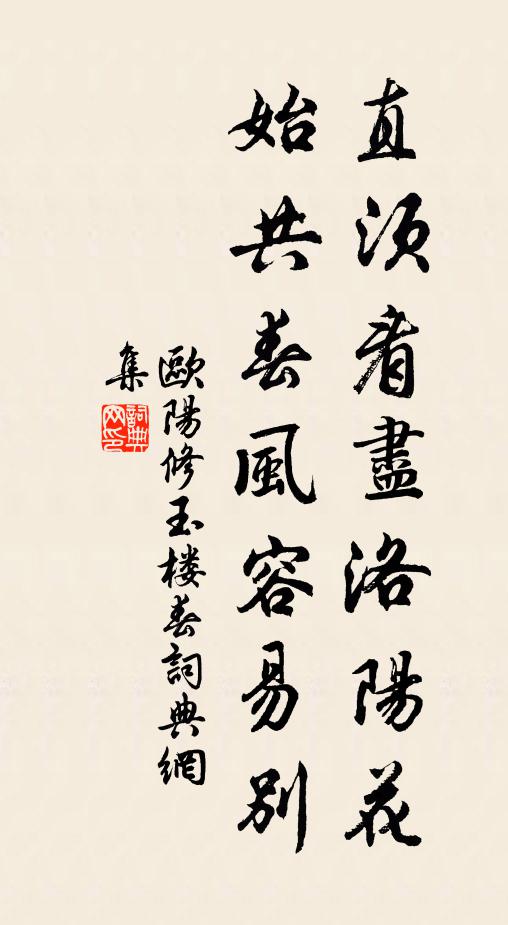 直須看盡洛陽花
始共春風容易別
歐陽修玉楼春詞典網
集
詞典
网印